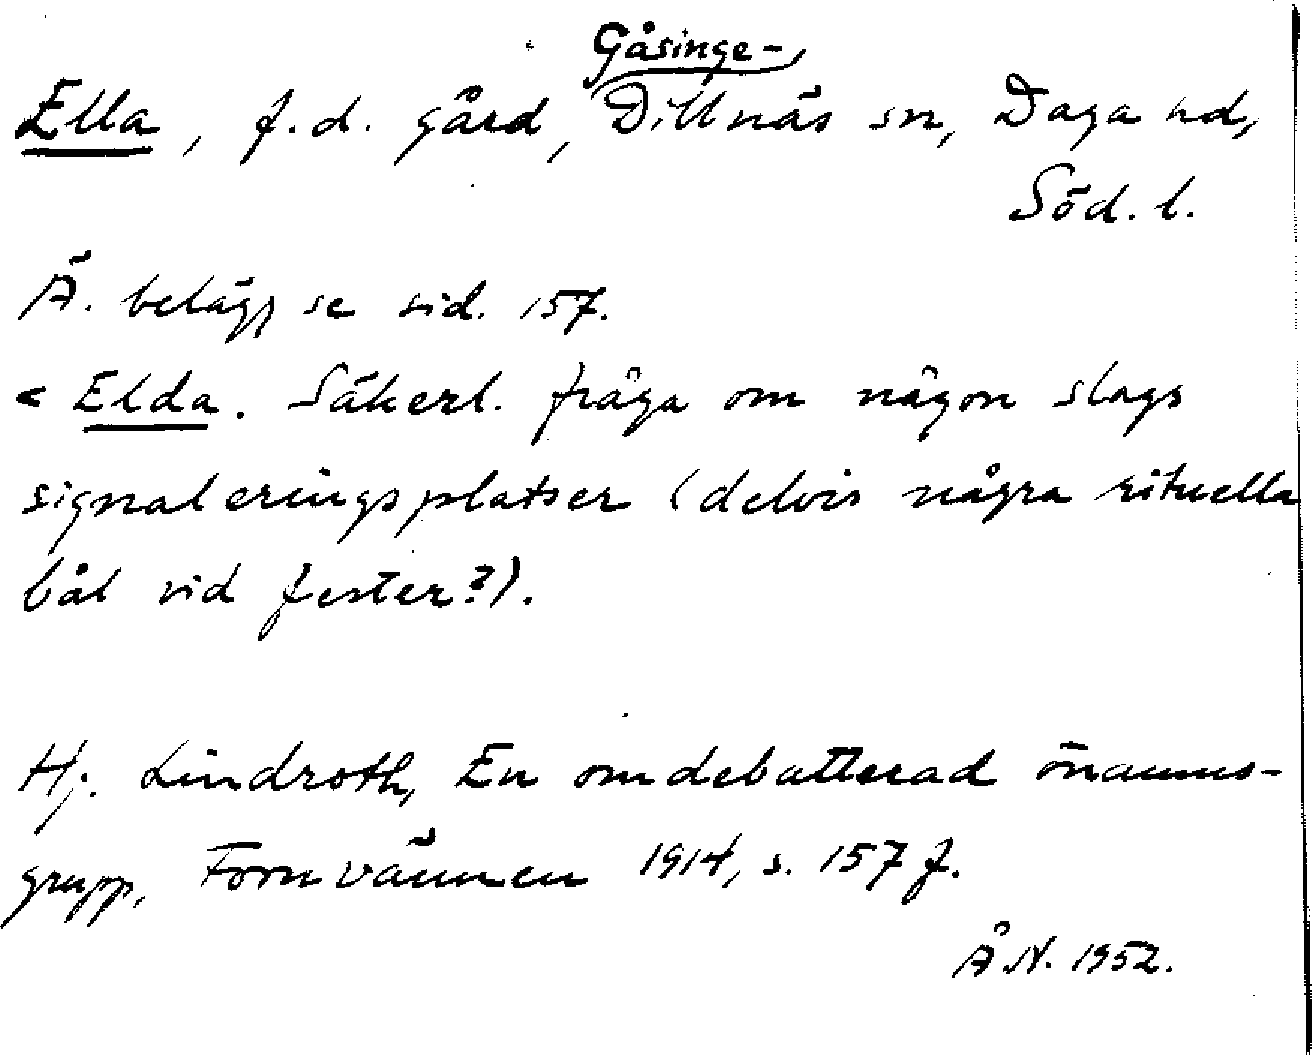 Gåsinge-
Ella, f.d. gård, Dillnäs sn, Daga hd,
Söd. l.
Ä. belägg se sid. 157.
< Elda. Säkerl. fråga om någon slags
signaleringsplatser (delvis några rituella
bål vid fester?).
Hj. Lindroth, En omdebatterad önamns-
grupp, Fornvännen 1914, s. 157 f.
Å N. 1952.